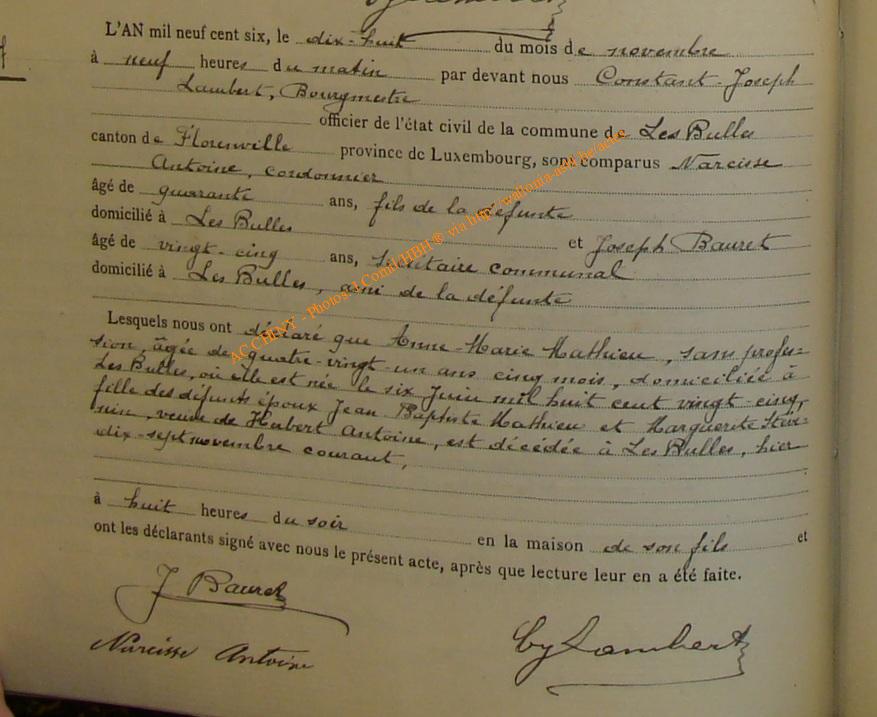 L'AN mil neuf cent six, le dix-huit du mois de novembre
à neuf heures du matin par devant nous Constant-Joseph
Lambert, Bourgmestre
officier de l'état civil de la commune de Les Bulles
canton de Florenville province de Luxembourg, sont comparus Narcisse
Antoine, cordonnier
âgé de quarante ans, fils de la défunte
domicilié à Les Bulles et Joseph Bauret
âgé de vingt-cinq ans, secrétaire communal
domicilié à Les Bulles, ami de la défunte
Lesquels nous ont déclaré que Anne-Marie Mathieu, sans profes-
sion, âgée de quatre-vingt-un ans cinq mois, domiciliée à
Les Bulles, où elle est née le six Juin mil huit cent vingt-cinq,
fille des défunts époux Jean Baptiste Mathieu et Marguerite Stéve-
nin, veuve de Hubert Antoine, est décédée à Les Bulles, hier
dix-sept novembre courant,
à huit heures du soir en la maison de son fils et
ont les déclarants signé avec nous le présent acte, après que lecture leur en a été faite.
J Bauret
Narcisse Antoine
Lambert
ACCHINY - Photos J Comil/HBH ® via http